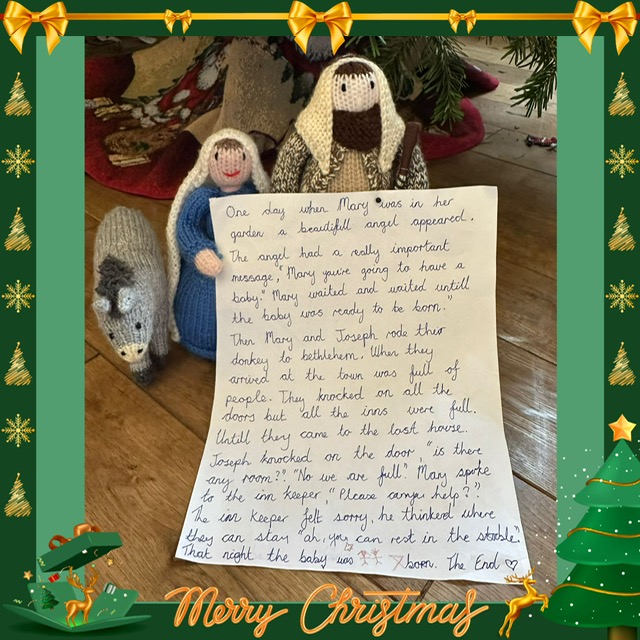 One day when Mary was in her
garden a beautifull angel appeared.
The angel had a really important
message, "Mary you're going to have a
baby." Mary waited and waited untill
the baby was ready to be born."
Then Mary and Joseph rode their
donkey to bethlehem. When they
arrived at the town was full of
people. They knocked on all the
doors but all the inns were full.
Untill they came to the last house.
Joseph knocked on the door, "is there
any room?" "No we are full." Mary spoke
to the inn keeper, "Please can you help?"
The inn keeper felt sorry, he thinkerd where
they can stay "ah, you can rest in the stable."
That night the baby was born. The End ♡
Merry Christmas